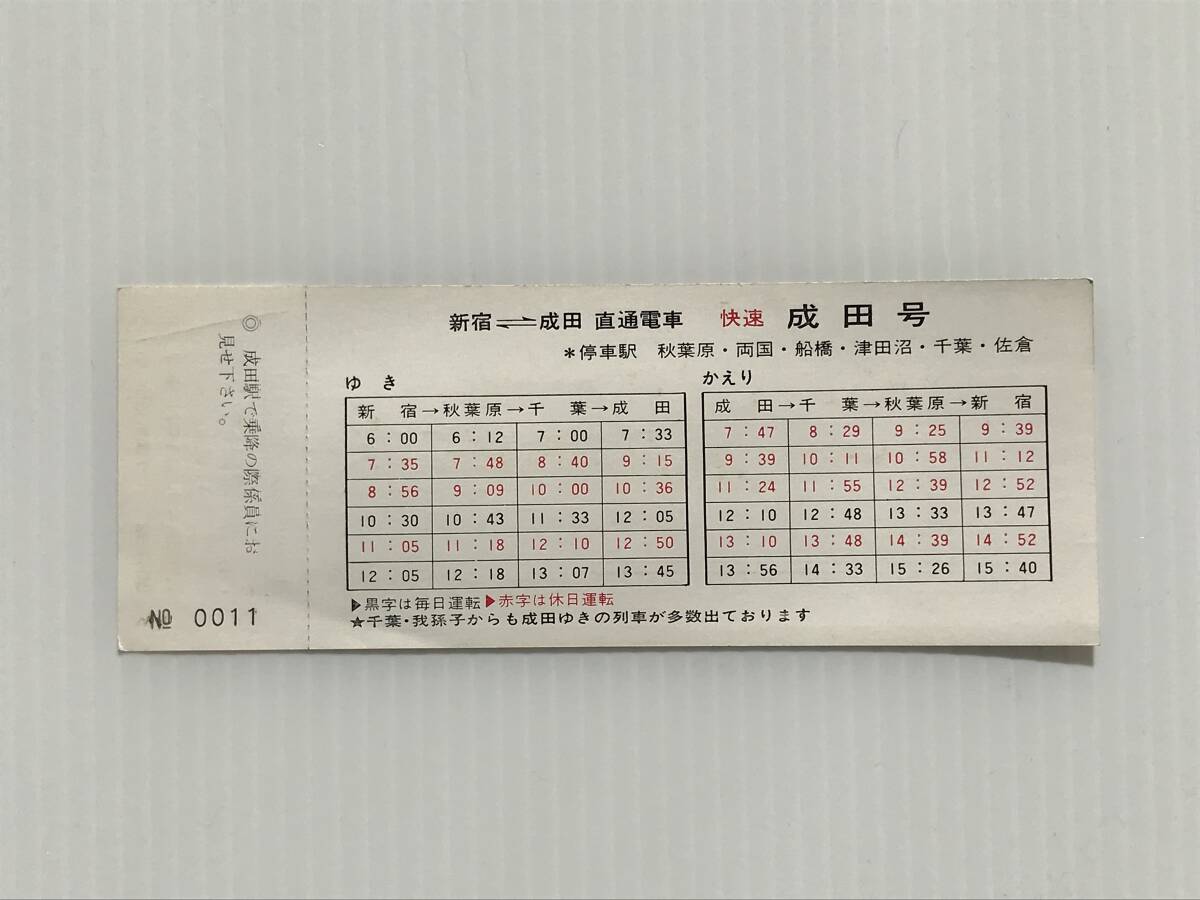 ◎ 成田駅で乗降の際係員にお
見せ下さい。
№ 0011
新宿⇌成田 直通電車 快速 成田号
*停車駅 秋葉原・両国・船橋・津田沼・千葉・佐倉
ゆき
新宿→秋葉原→千葉→成田
6:00 6:12 7:00 7:33
7:35 7:48 8:40 9:15
8:56 9:09 10:00 10:36
10:30 10:43 11:33 12:05
11:05 11:18 12:10 12:50
12:05 12:18 13:07 13:45
かえり
成田→千葉→秋葉原→新宿
7:47 8:29 9:25 9:39
9:39 10:11 10:58 11:12
11:24 11:55 12:39 12:52
12:10 12:48 13:33 13:47
13:10 13:48 14:39 14:52
13:56 14:33 15:26 15:40
▶黒字は毎日運転▶赤字は休日運転
★千葉・我孫子からも成田ゆきの列車が多数出ております